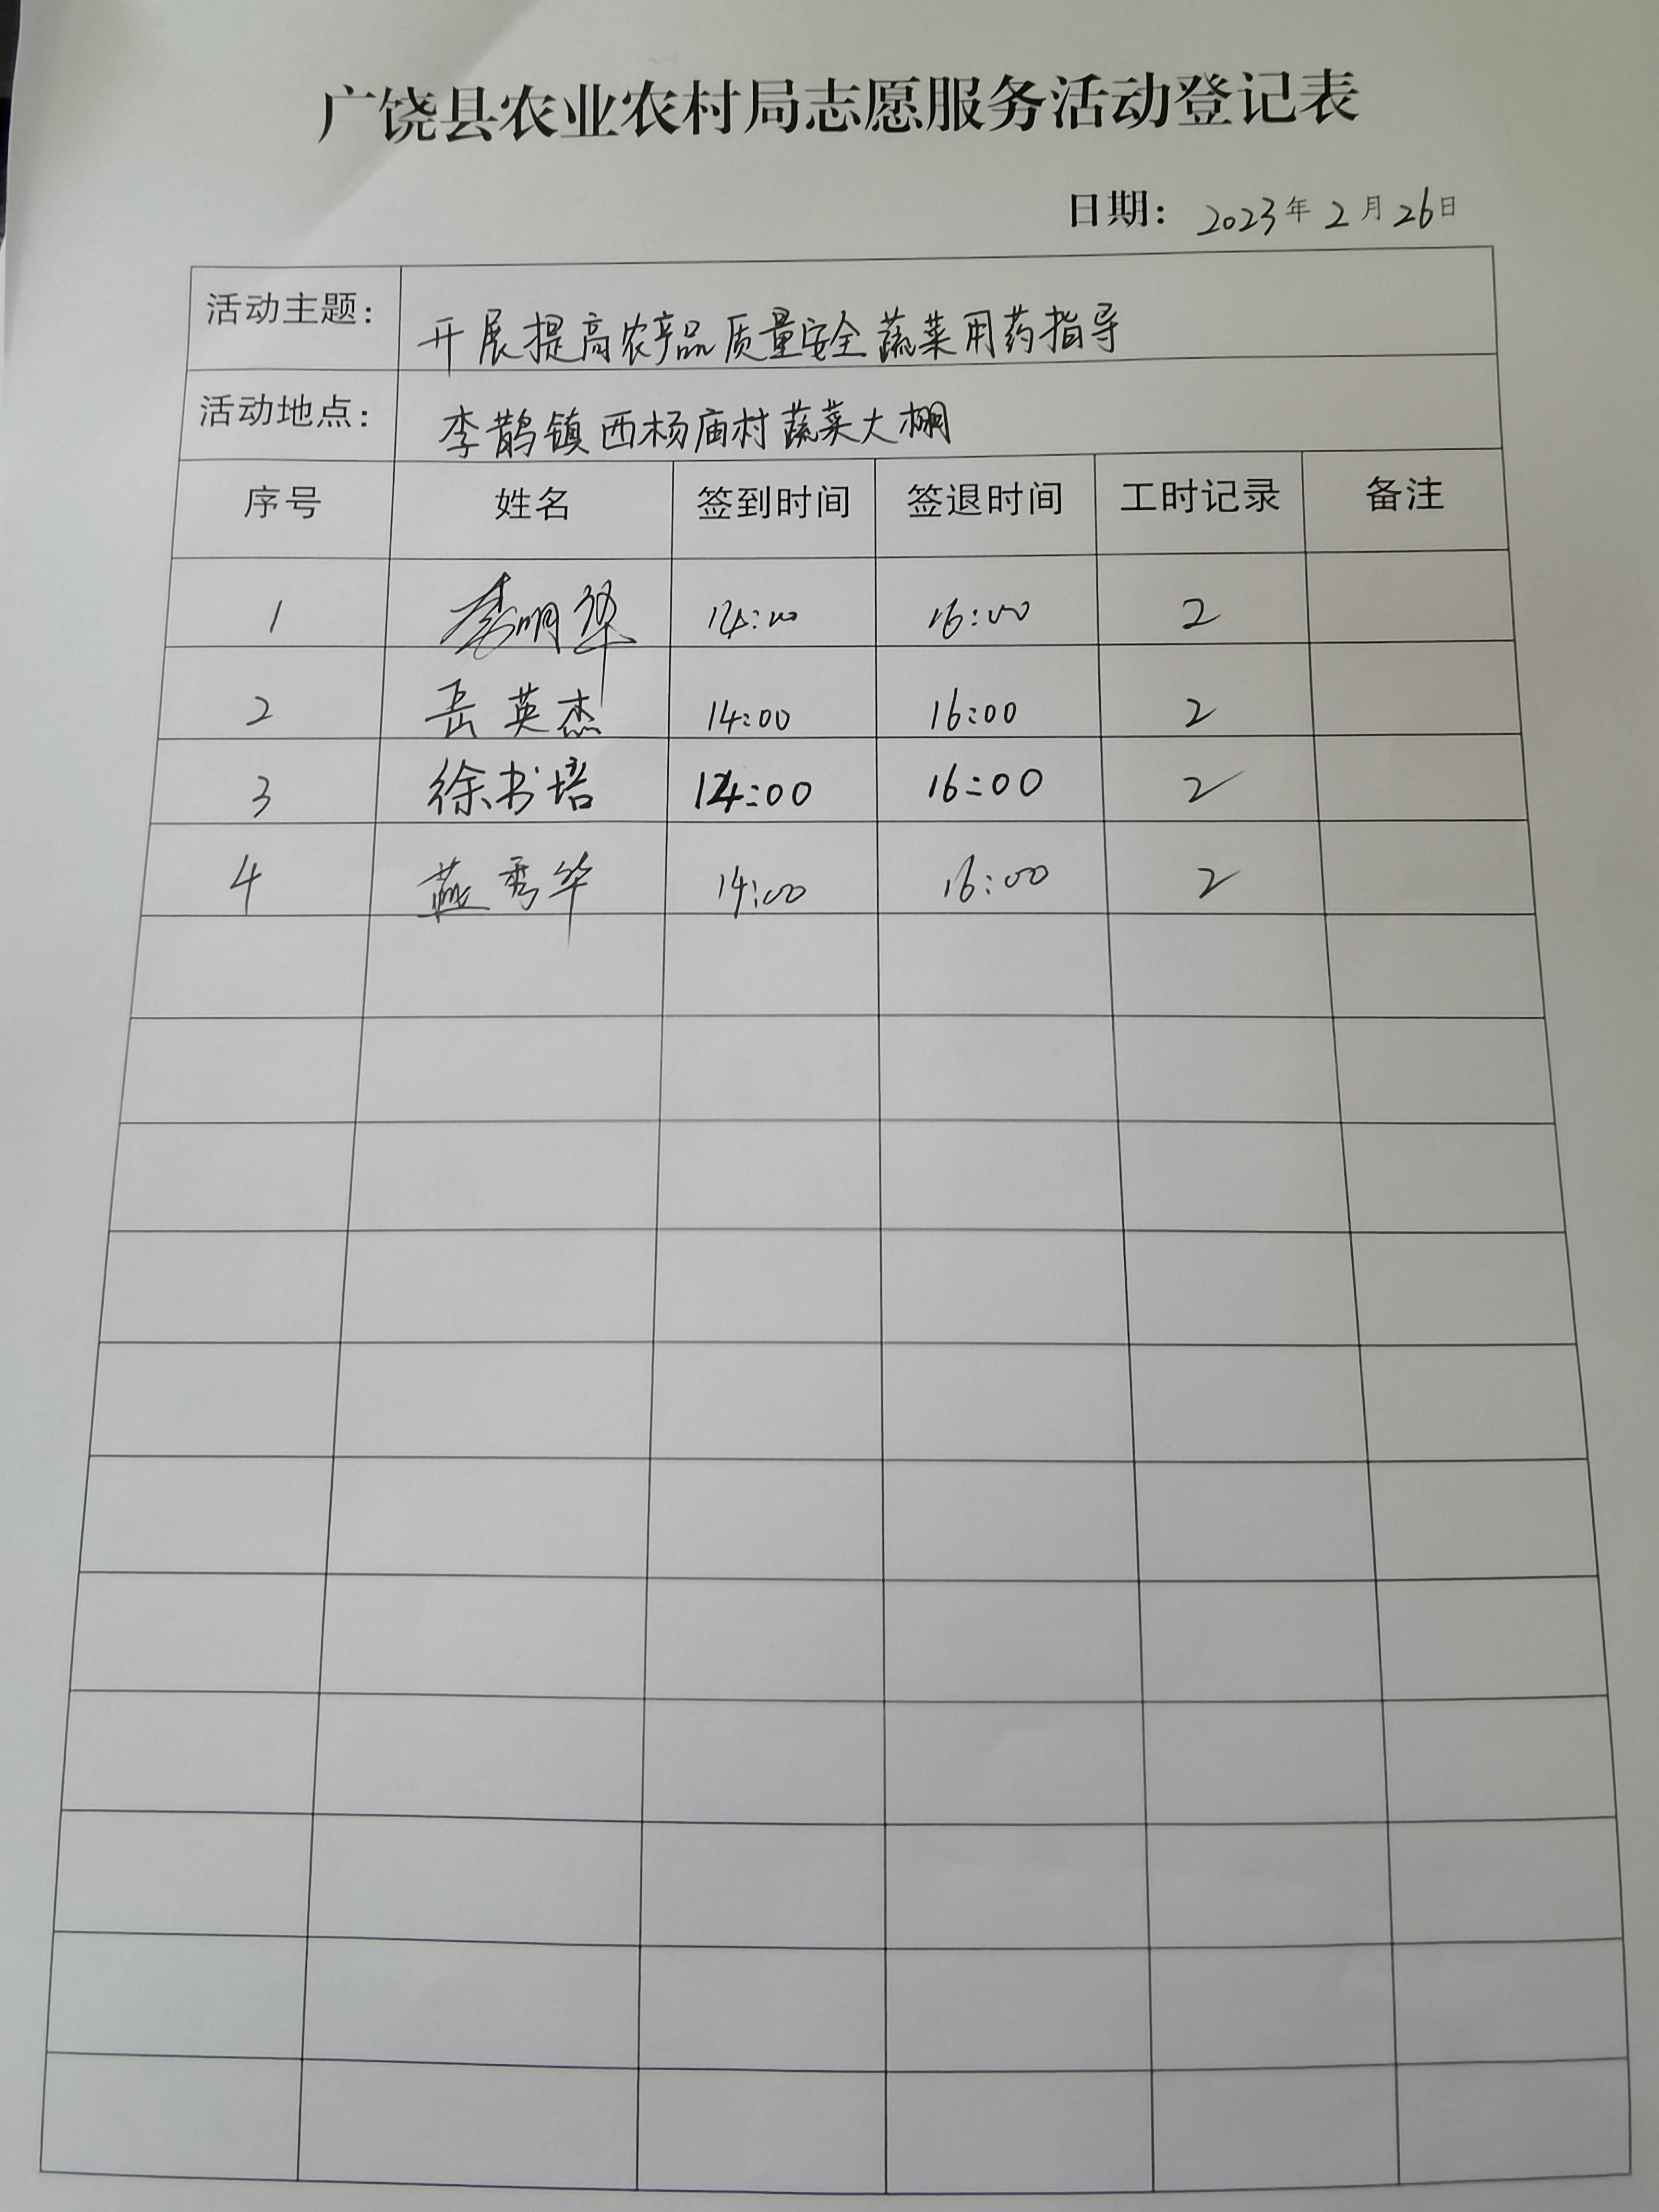 广饶县农业农村局志愿服务活动登记表
日期: 2023年2月26日
活动主题: 开展提高农产品质量安全蔬菜用药指导
活动地点: 李鹊镇西杨庙村蔬菜大棚
序号 姓名 签到时间 签退时间 工时记录 备注
1 李明华 14:00 16:00 2
2 岳英杰 14:00 16:00 2
3 徐书培 14:00 16:00 2
4 燕秀华 14:00 16:00 2